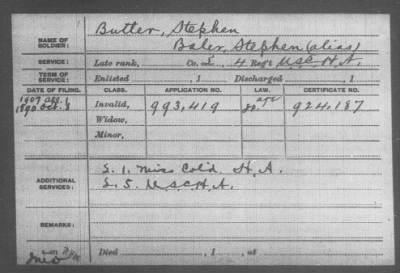 NAME OF SOLDIER: Butler, Stephen
Baler, Stephen (alias)
SERVICE: Late rank, Co. L, 4 Reg't U.S.C. H.A.
TERM OF SERVICE: Enlisted , 1 Discharged , 1
DATE OF FILING. CLASS. APPLICATION NO. LAW. CERTIFICATE NO.
1890 Oct. 3 Invalid, 993,419 924,187
Widow,
Minor,
ADDITIONAL SERVICES: L. 1. Miss Col'd H.A.
L. 5. U.S.C.H.A.
REMARKS:
Died , 1 , at